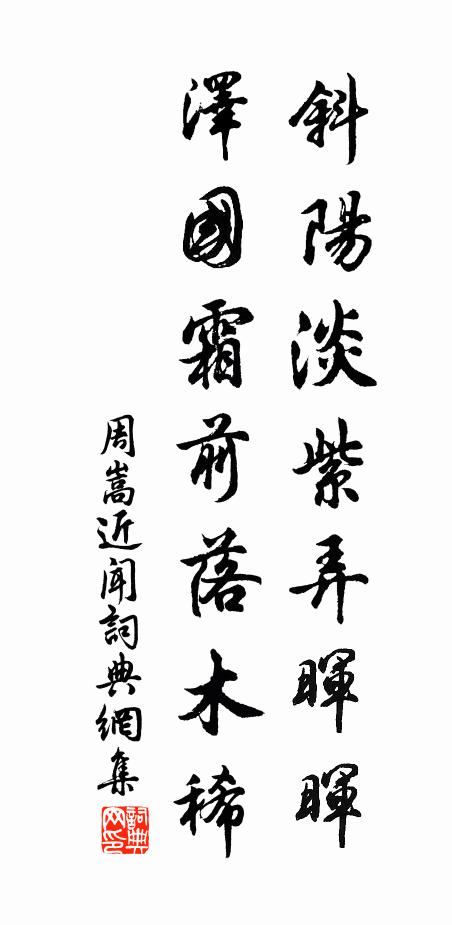 斜陽淡紫弄暉暉
澤國霜前落木稀
周嵩近聞詞典網集
詞典網印